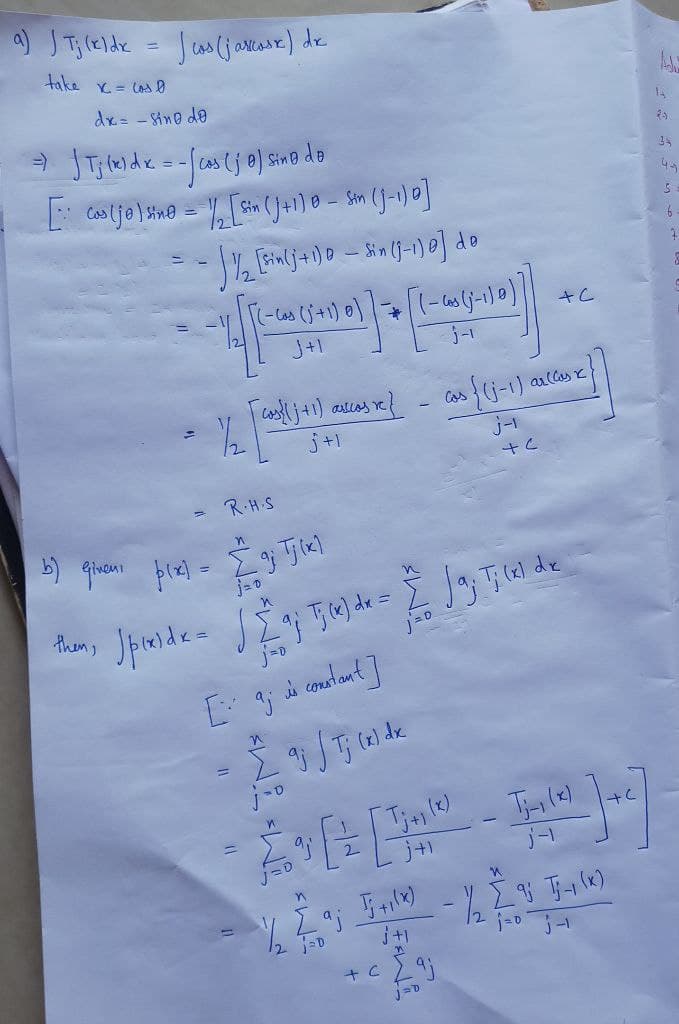 a) ∫ Tj(x)dx = ∫ cos(j arccosx) dx
take x = cosθ
dx = - sinθ dθ
⇒ ∫ Tj(x) dx = -∫ cos(jθ) sinθ dθ
[∵ cos(jθ) sinθ = 1/2 [sin(j+1)θ - sin(j-1)θ]
= - ∫ 1/2 [sin(j+1)θ - sin(j-1)θ] dθ
= -1/2 [[(-cos(j+1)θ)/(j+1)] - [(-cos(j-1)θ)/(j-1)]] + c
= 1/2 [cos{(j+1) arccosx}/(j+1) - cos{(j-1) arccosx}/(j-1)]
+ c
= R.H.S
b) given: p(x) = Σ_{j=0}^{n} aj Tj(x)
then, ∫p(x)dx = ∫ Σ_{j=0}^{n} aj Tj(x) dx = Σ_{j=0}^{n} ∫ aj Tj(x) dx
[∵ aj is constant]
= Σ_{j=0}^{n} aj ∫ Tj(x) dx
= Σ_{j=0}^{n} aj [1/2 [Tj+1(x)/(j+1) - Tj-1(x)/(j-1)] + c]
= 1/2 Σ_{j=0}^{n} aj Tj+1(x)/(j+1) - 1/2 Σ_{j=0}^{n} aj Tj-1(x)/(j-1)
+ c Σ_{j=0}^{n} aj